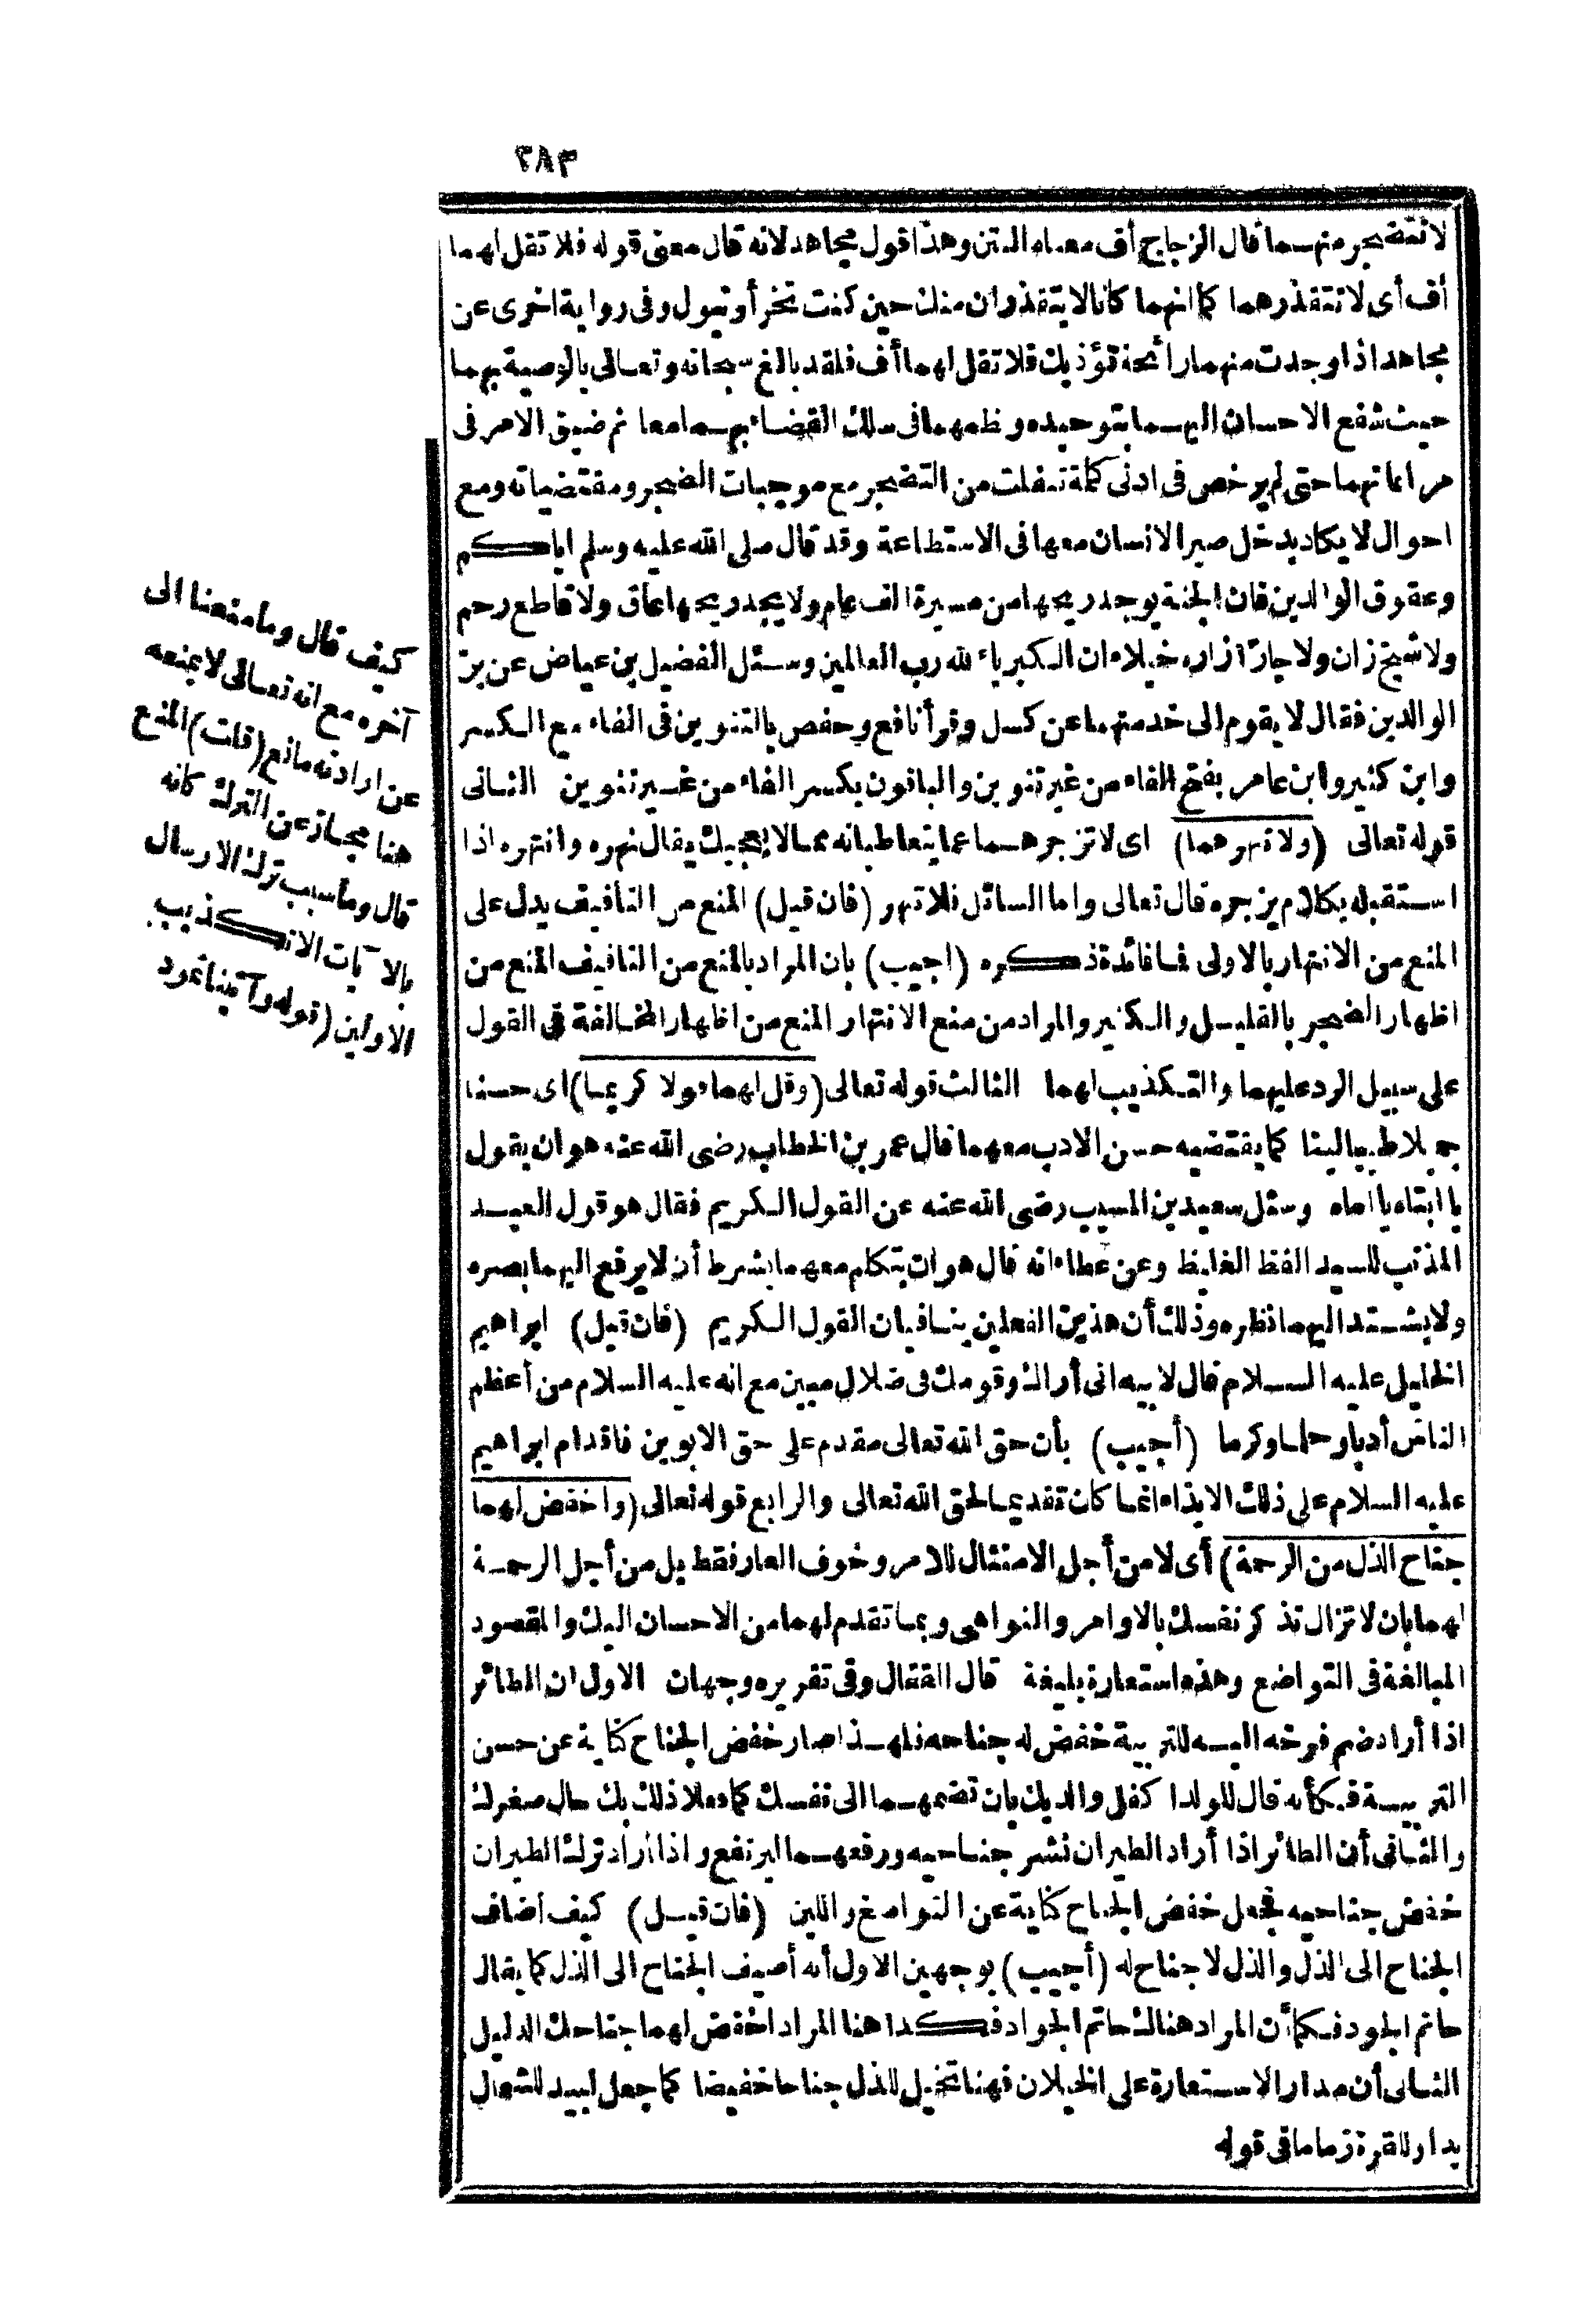 ٣٨٣
لا تتضجر منهما قال الزجاج أف معناه النتن وهذا قول مجاهد لانه قال معنى قوله فلا تقل لهما
أف أى لا تتقذرهما كما انهما كانا لا يتقذران منك حين كنت تخر أو تبول وفى رواية اخرى عن
مجاهد اذا وجدت منهما رائحة تؤذيك فلا تقل لهما أف فلقد بالغ سبحانه وتعالى بالوصية بهما
حيث شفع الاحسان اليهما بتوحيده ونظمهما فى سلك القضاء بهما معا ثم ضيق الامر فى
مراعاتهما حتى لم يرخص فى ادنى كلمة تنفلت من التضجر مع موجبات الضجر ومقتضياته ومع
احوال لا يكاد يدخل صبر الانسان معها فى الاستطاعة وقد قال صلى الله عليه وسلم اياكم
وعقوق الوالدين فان الجنة يوجد ريحها من مسيرة الف عام ولا يجد ريحها عاق ولا قاطع رحم
ولا شيخ زان ولا جارّ ازاره خيلاء ان الكبرياء لله رب العالمين وسئل الفضيل بن عياض عن برّ
الوالدين فقال لا يقوم الى خدمتهما عن كسل وقرأ نافع وحفص بالتنوين فى الفاء مع الكسر
وابن كثير وابن عامر بفتح الفاء من غير تنوين والباقون بكسر الفاء من غير تنوين الثانى
قوله تعالى (ولا تنهرهما) اى لا تزجرهما عما يتعاطيانه مما لا يعجبك يقال نهره وانتهره اذا
استقبله بكلام يزجره قال تعالى واما السائل فلا تنهر (فان قيل) المنع من التأفيف يدل على
المنع من الانتهار بالاولى فما فائدة ذكره (اجيب) بان المراد بالمنع من التافيف المنع من
اظهار الضجر بالقليل والكثير والمراد من منع الانتهار المنع من اظهار المخالفة فى القول
على سبيل الرد عليهما والتكذيب لهما الثالث قوله تعالى (وقل لهما قولا كريما) اى حسنا
جميلا طيبا لينا كما يقتضيه حسن الادب معهما قال عمر بن الخطاب رضى الله عنه هو ان يقول
يا ابتاه يا اماه وسئل سعيد بن المسيب رضى الله عنه عن القول الكريم فقال هو قول العبد
المذنب للسيد الفظ الغليظ وعن عطاء انه قال هو ان يتكلم معهما بشرط أن لا يرفع اليهما بصره
ولا يشتد اليهما نظره وذلك أن هذين الفعلين ينافيان القول الكريم (فان قيل) ابراهيم
الخليل عليه السلام قال لابيه انى أراك وقومك فى ضلال مبين مع انه عليه السلام من أعظم
الناس أدبا وحلما وكرما (أجيب) بأن حق الله تعالى مقدم على حق الابوين فاقدام ابراهيم
عليه السلام على ذلك الايذاء انما كان تقديما لحق الله تعالى والرابع قوله تعالى (واخفض لهما
جناح الذل من الرحمة) أى لا من أجل الامتثال للامر وخوف العار فقط بل من أجل الرحمة
لهما بان لا تزال تذكر نفسك بالاوامر والنواهى وبما تقدم لهما من الاحسان اليك والمقصود
المبالغة فى التواضع وهذه استعارة بليغة قال القفال وفى تقريره وجهان الاول ان الطائر
اذا أراد ضم فرخه اليه للتربية خفض له جناحه فلهذا صار خفض الجناح كناية عن حسن
التربية فكأنه قال للولد اكفل والديك بان تضمهما الى نفسك كما فعلا ذلك بك حال صغرك
والثانى أن الطائر اذا أراد الطيران نشر جناحيه ورفعهما ليرتفع واذا أراد ترك الطيران
خفض جناحيه فجعل خفض الجناح كناية عن التواضع واللين (فان قيل) كيف اضاف
الجناح الى الذل والذل لا جناح له (أجيب) بوجهين الاول أنه أضيف الجناح الى الذل كما يقال
حاتم الجود فكما أن المراد هنالك حاتم الجواد فكذا هنا المراد اخفض لهما جناحك الذليل
الثانى أن مدار الاستعارة على الخيلان فهنا تخيل للذل جناحا خفيضا كما جعل لبيد للشمال
يدا وللقرة زماما فى قوله
كيف قال وما منعنا الى
آخره مع انه تعالى لا يمنعه
عن ارادته مانع (قلت) المنع
هنا مجاز عن الترك كانه
قال وما سبب ترك الارسال
بالآيات الا تكذيب
الاولين (قوله وآتينا ثمود